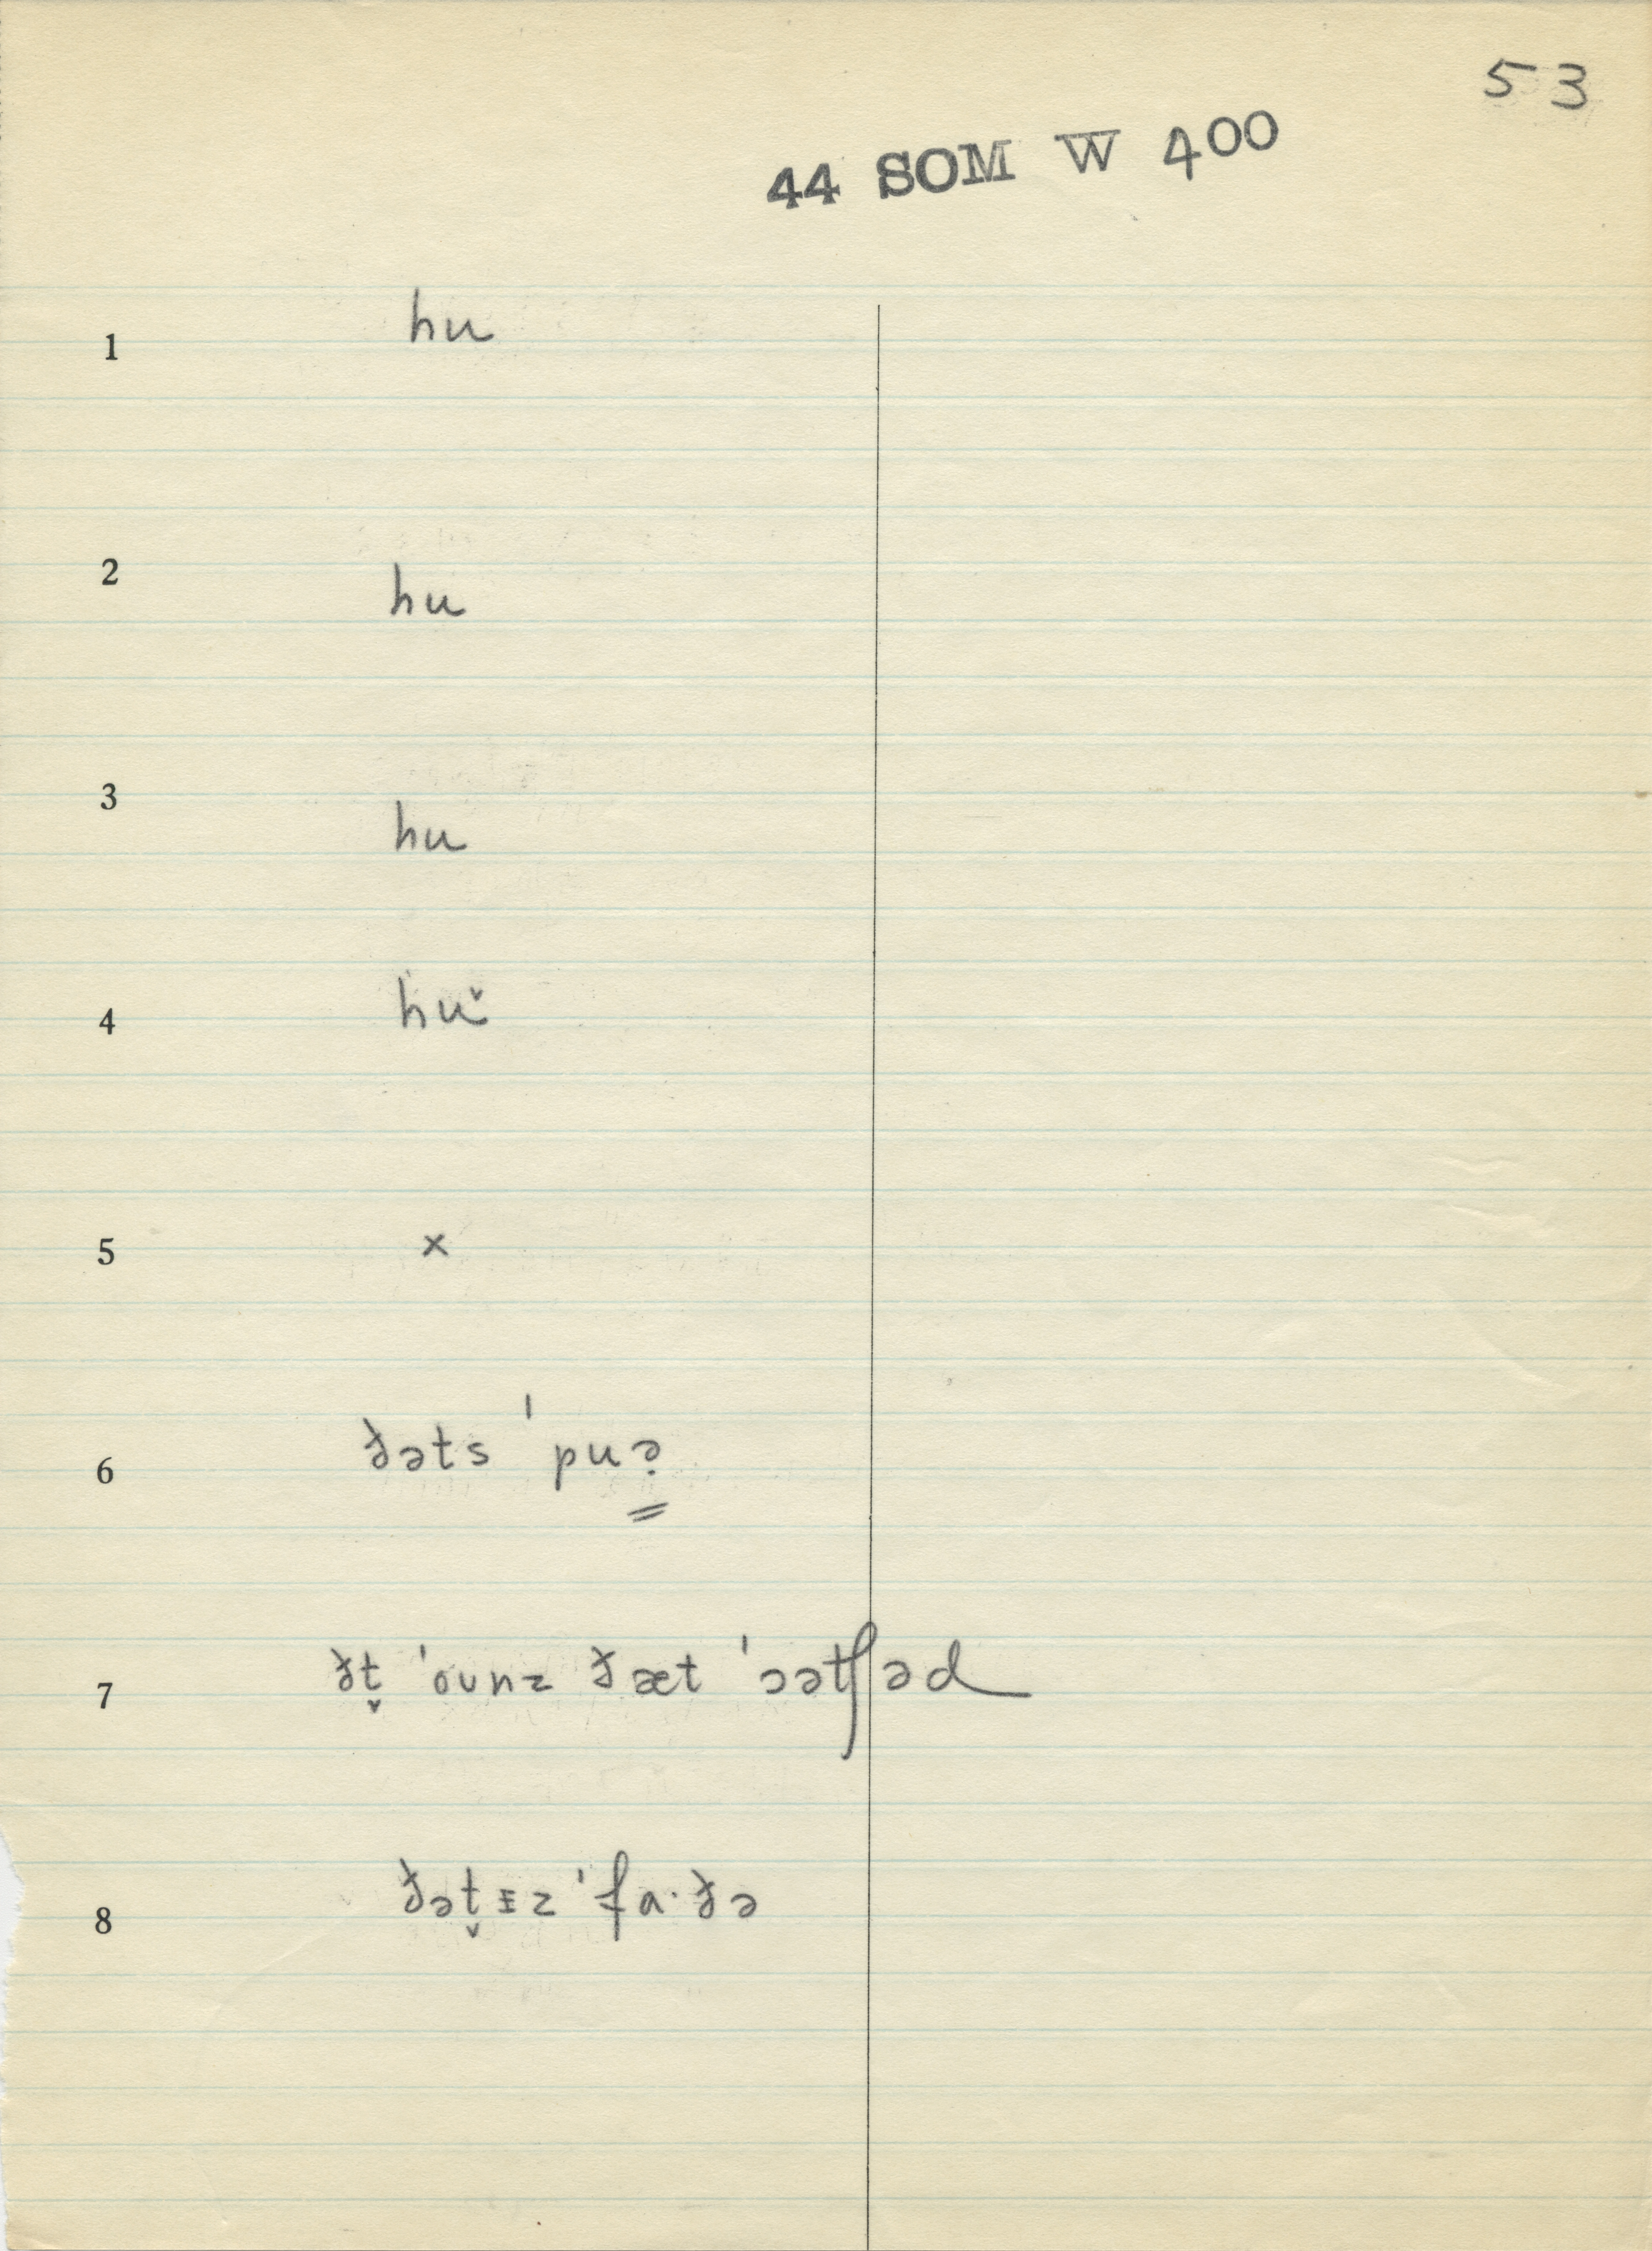 53
44 SOM W 400
1 hu
2 hu
3 hu
4 hu˅
5 ×
6 ðəts ˈpuə̣
7 ðt̬ ˈounz ðæt ˈɔətʃəd
8 ðət̬ɪz ˈfa·ðə